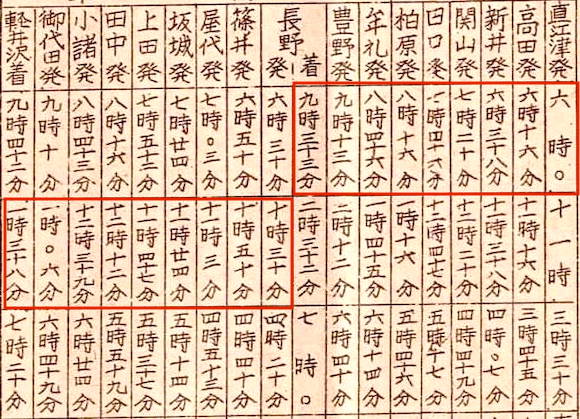 直江津発 六時〇 十一時 三時三十分
高田発 六時十六分 十一時十六分 三時四十五分
新井発 六時三十八分 十一時三十八分 四時〇七分
関山発 七時二十分 十二時二十分 四時四十九分
田口発 時四十六分 十二時四十七分 五時十七分
柏原発 八時十六分 一時十六分 五時四十六分
牟礼発 八時四十六分 一時四十五分 六時十四分
豊野発 九時十三分 二時十二分 六時四十分
長野着 九時三十三分 二時三十二分 七時〇
発 六時三十分 十時三十分 四時二十分
篠井発 六時五十分 十時五十分 四時四十分
屋代発 七時〇三分 十一時三分 四時五十三分
坂城発 七時廿四分 十一時廿四分 五時十四分
上田発 七時五十二分 十一時四七分 五時三十七分
田中発 八時十六分 十二時十二分 五時五十九分
小諸発 八時四十三分 十二時三十九分 六時廿四分
御代田発 九時十分 一時〇六分 六時四十九分
軽井沢着 九時四十二分 一時三十八分 七時二十分